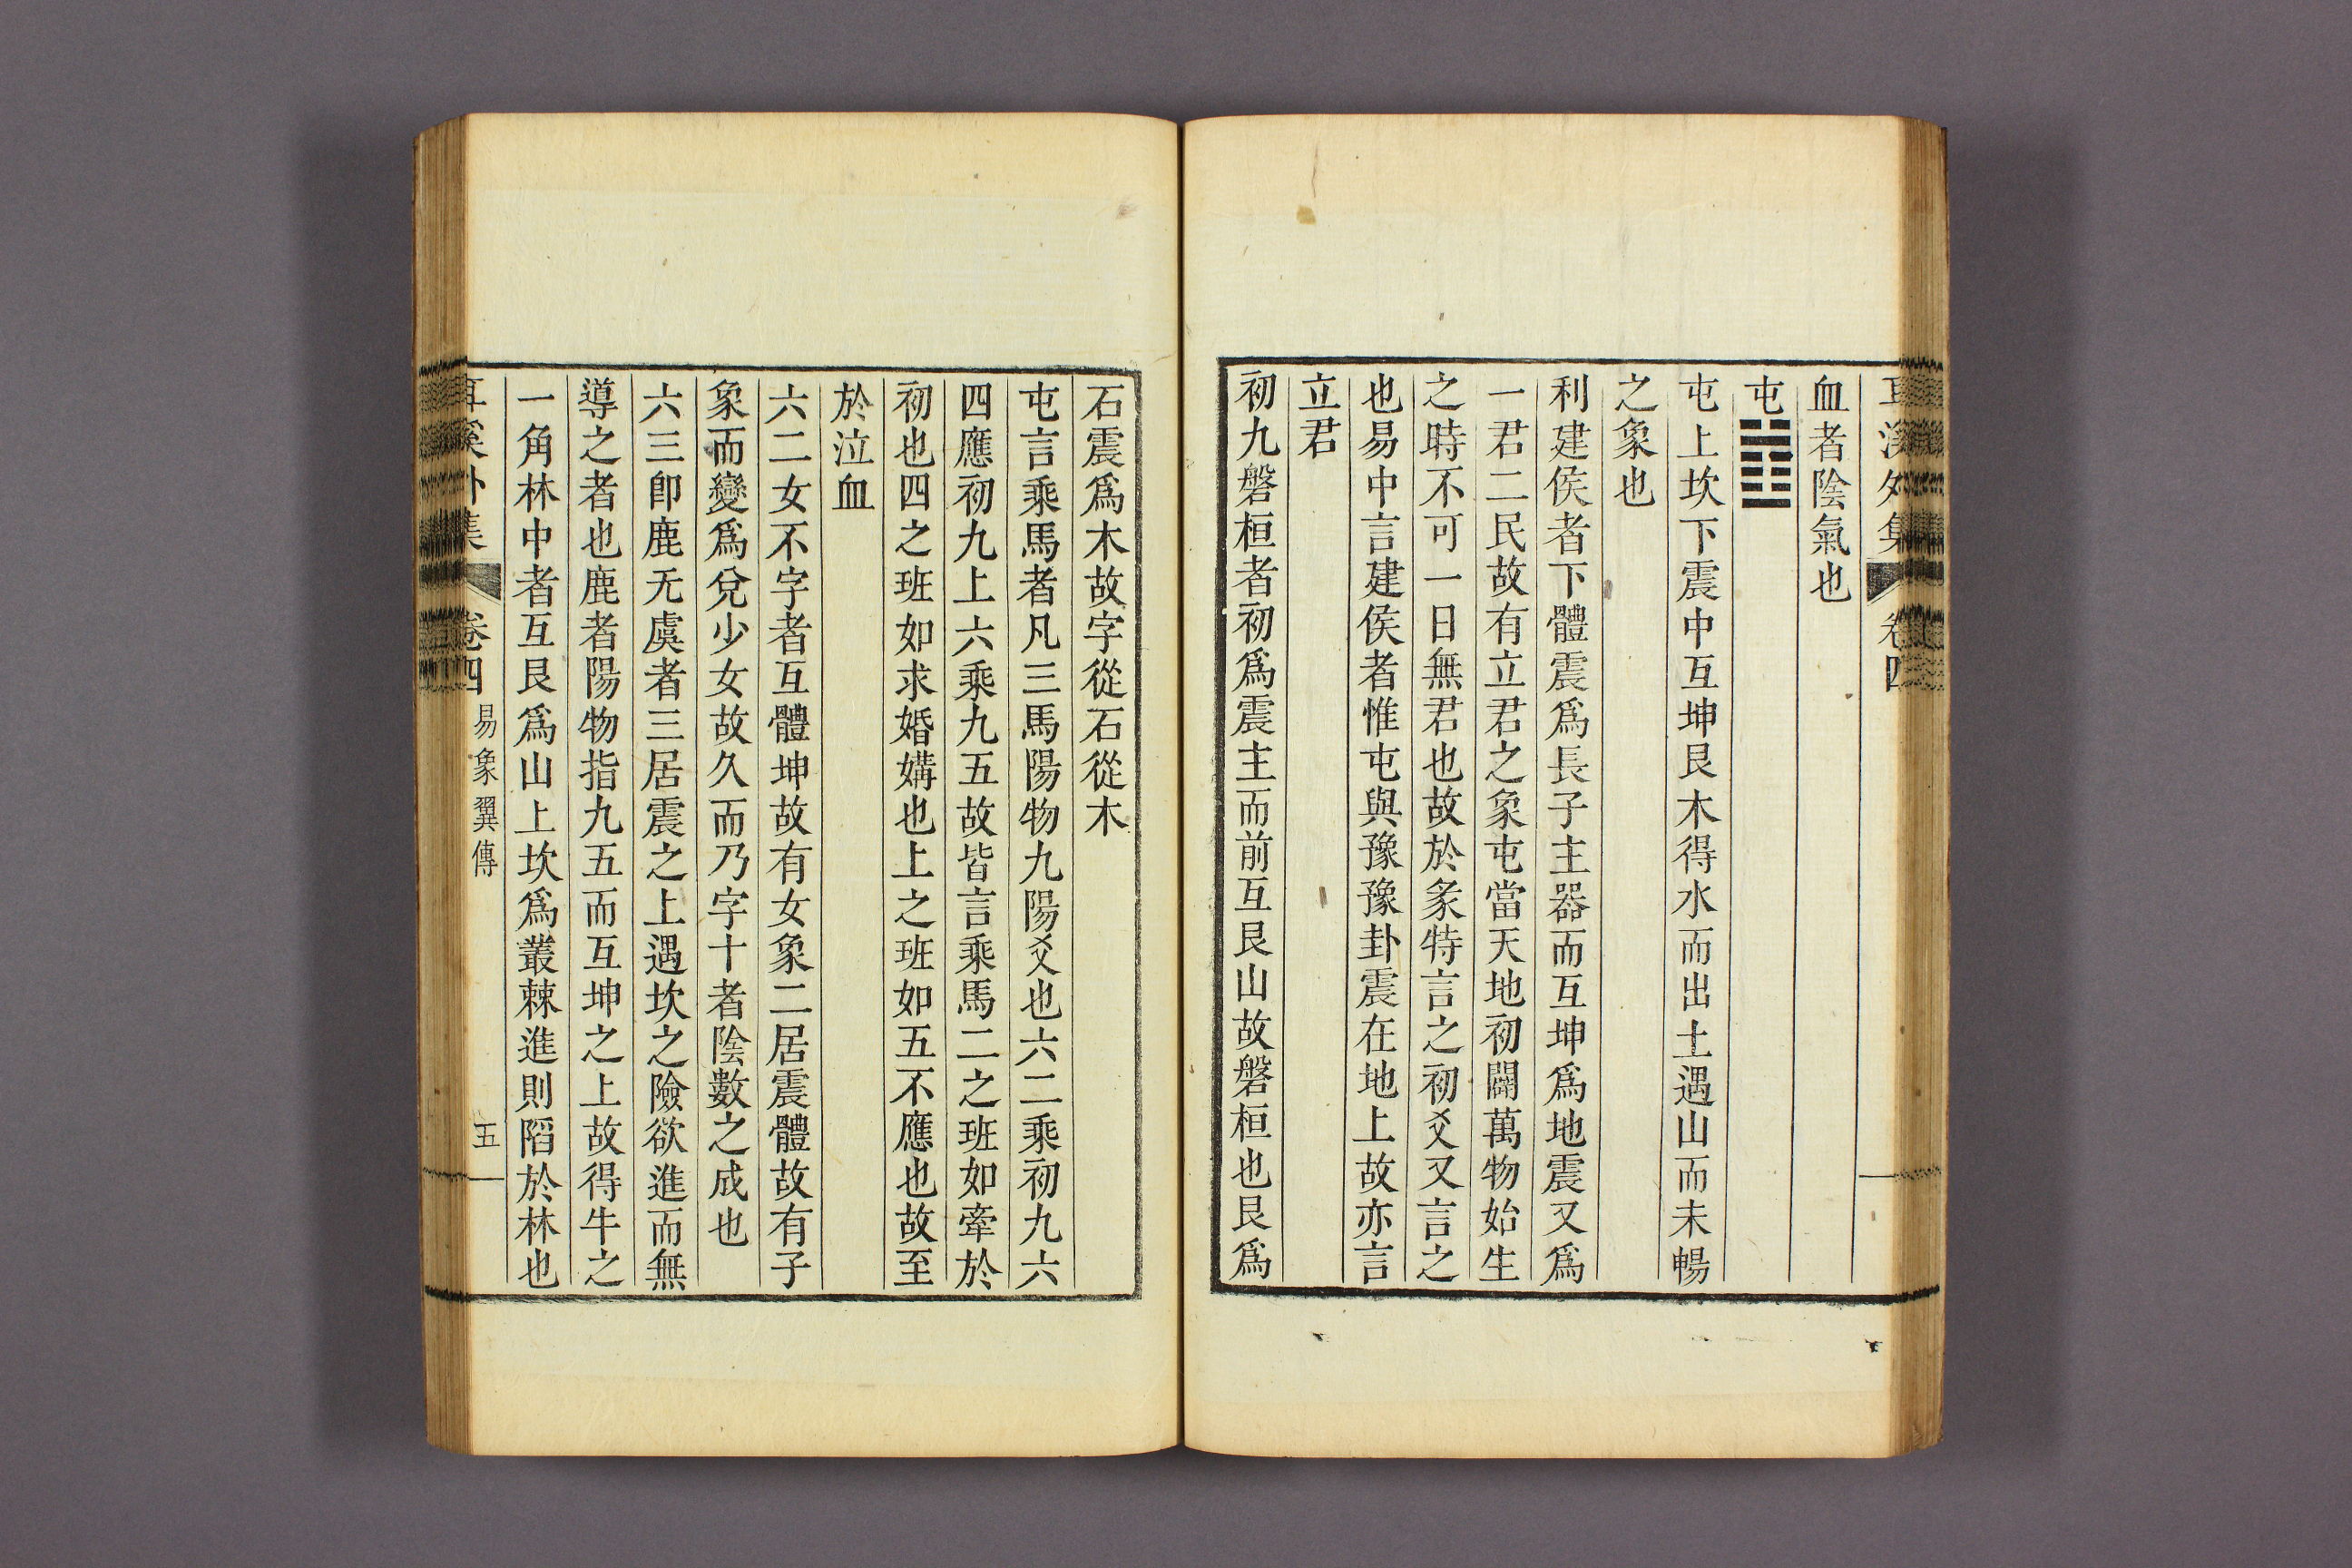 耳溪外集 卷四
血者陰氣也
屯
屯上坎下震中互坤艮木得水而出土遇山而未暢
之象也
利建侯者下體震爲長子主器而互坤爲地震又爲
一君二民故有立君之象屯當天地初闢萬物始生
之時不可一日無君也故於彖特言之初爻又言之
也易中言建侯者惟屯與豫豫卦震在地上故亦言
立君
初九磐桓者初爲震主而前互艮山故磐桓也艮爲
石震爲木故字從石從木
屯言乘馬者凡三馬陽物九陽爻也六二乘初九六
四應初九上六乘九五故皆言乘馬二之班如牽於
初也四之班如求婚媾也上之班如五不應也故至
於泣血
六二女不字者互體坤故有女象二居震體故有子
象而變爲兌少女故久而乃字十者陰數之成也
六三卽鹿无虞者三居震之上遇坎之險欲進而無
導之者也鹿者陽物指九五而互坤之上故得牛之
一角林中者互艮爲山上坎爲叢棘進則陷於林也
耳溪外集 卷四 易象翼傳 五